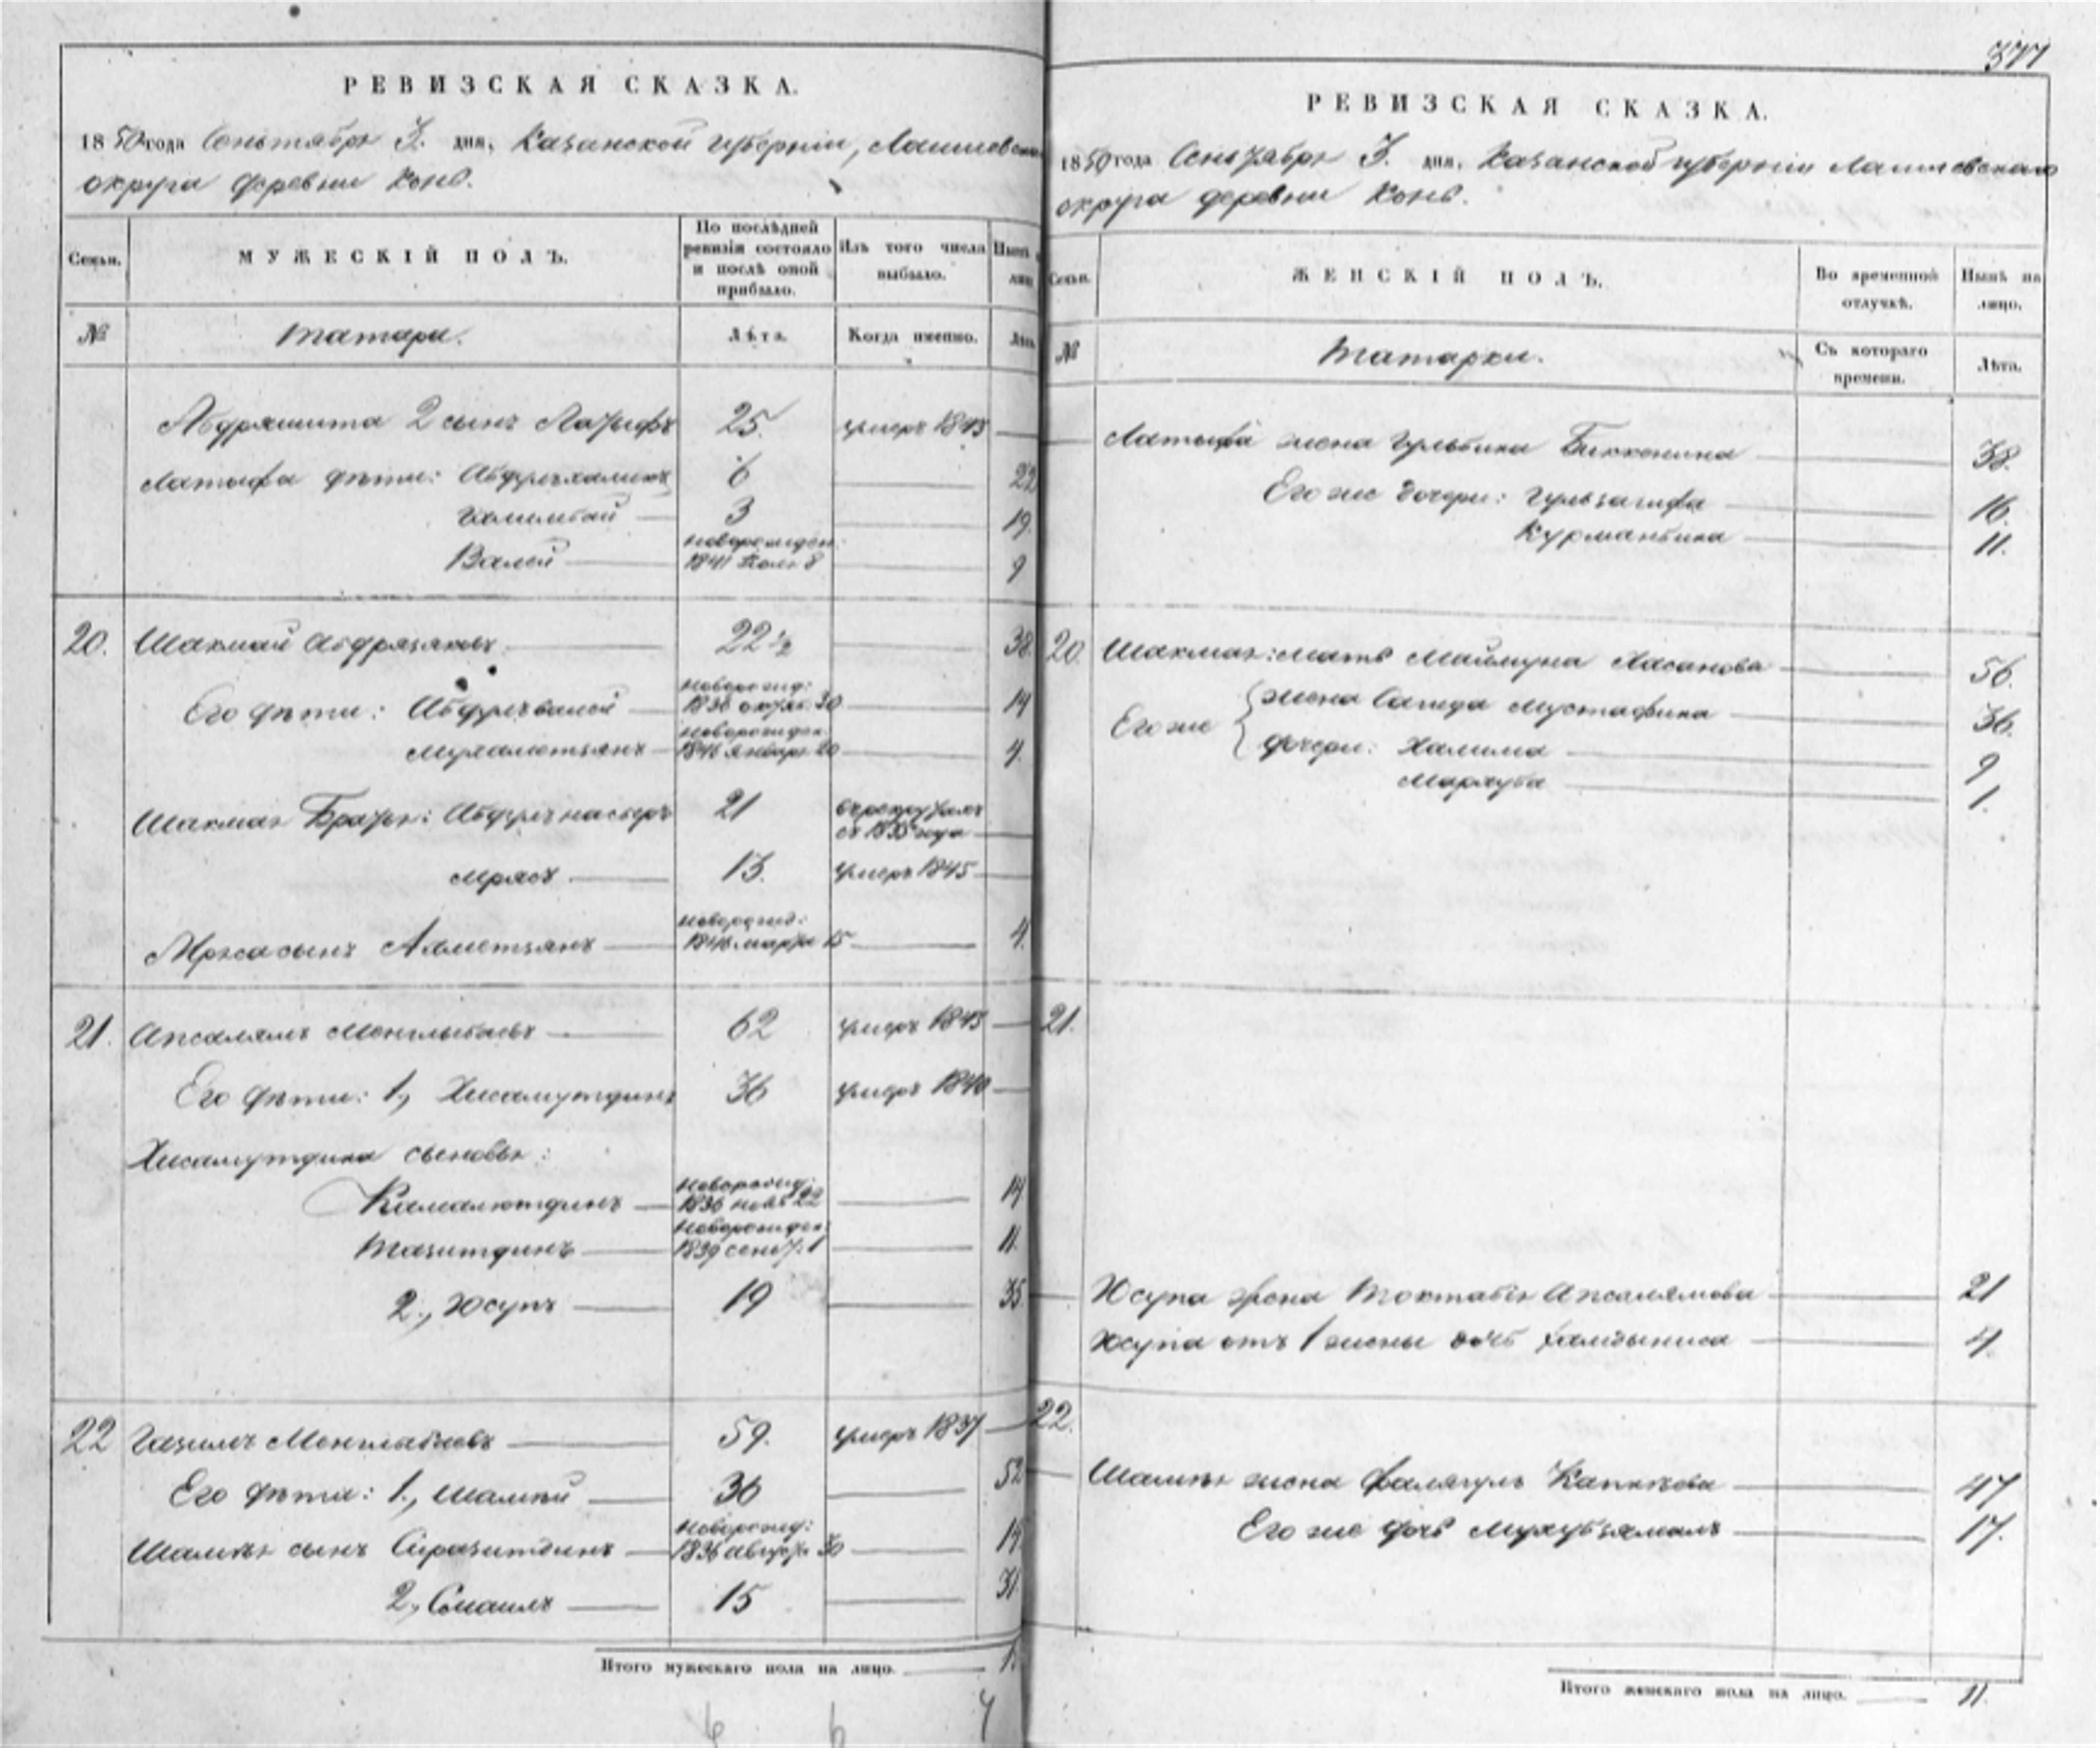 РЕВИЗСКАЯ СКАЗКА.
1850 года Сентября 3. дня, Казанской губерніи, Лаишевскаго
округа деревни Конь.
Семьи.
МУЖЕСКІЙ ПОЛЪ.
По послѣдней
ревизіи состояло
и послѣ оной
прибыло.
Изъ того числа
выбыло.
Нынѣ на
лицо.
№
Татара.
Лѣта.
Когда именно.
Лѣта.
Абдряшита 2 сынъ Латыфъ 25. умеръ 1843
Латыфа дѣти: Абдулъхаликъ 6 22
Галимбай 3 19.
Валей новорожден. 1841 Іюля 8 9
20. Шакмай Абдрязяковъ 22½ 38.
Его дѣти: Абдулъвалей новорожд: 1836 октяб. 30 14
Мухаметзянъ новорожден. 1846 Января 20 4.
Шакмая Братья: Абдулънасыръ 21 въ рекрутахъ съ 1835 года
Мрясъ 13. умеръ 1845
Мряса сынъ Ахметзянъ новорожд: 1846 марта 15 4.
21. Апсалямъ Менглыбаевъ 62 умеръ 1843
Его дѣти: 1., Хисамутдинъ 36 умеръ 1840
Хисамутдина сыновья:
Камалютдинъ новорожд: 1836 нояб 22 14
Тазитдинъ новорожден: 1839 сент: 1 11.
2., Юсупъ 19 35.
22 Газимъ Менглибаевъ 59. умеръ 1837
Его дѣти: 1., Шамѣй 36 52
Шамѣя сынъ Сиразитдинъ новорожд: 1836 августа 30 14
2., Смаилъ 15 31
Итого мужескаго пола на лицо.
6 6 4
377
РЕВИЗСКАЯ СКАЗКА.
1850 года Сентября 3. дня, Казанской губерніи Лаишевскаго
округа деревни Конь.
Семьи.
ЖЕНСКІЙ ПОЛЪ.
Во временной
отлучкѣ.
Нынѣ на
лицо.
№
Татарки.
Съ котораго
времени.
Лѣта.
Латыфа жена Гульбика Биккенина 38.
Его же дочери: Гульзагифа 16.
Курманбика 11.
20. Шакмая: мать Маймуна Хасанова 56.
Его же жена Сагида Мустафина 36.
дочери: Халима 9
Мархуба 1.
21.
Юсупа жена Токтабія Апсалямова 21
Юсупа отъ 1 жены дочь 4.
22.
Шамѣя жена Фалягуль 47
Его же дочь Мухубзямалъ 17.
Итого женскаго пола на лицо. 11.